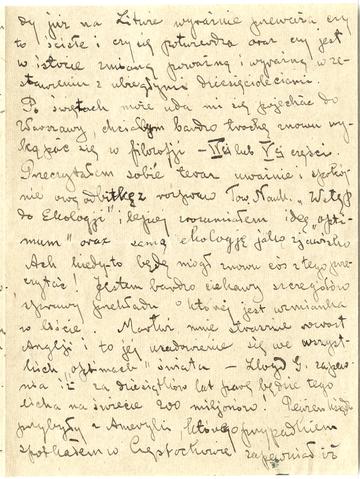 dy już na Litwie wyraźnie przeważa czy
to ścisłe i czy się potwierdza oraz czy jest
w istocie zmianą poważną i wyraźną w ze-
stawieniu z ubiegłymi dziesięcioleciami.
Po świętach może uda mi się pojechać do
Warszawy, chciałbym bardzo trochę znowu wy-
kąpać się w filozofji – VI lub V części.
Przeczytałem sobie teraz uważnie i spokoj-
nie ową odbitkę z rozpraw Tow. Nauk. „Wstęp
do Ekologji" i lepiej zrozumiałem ideę „opti-
mum" oraz samą ekologję jako zjawisko
Ach kiedyż to będę mógł znowu coś z tego prze-
czytać! Jestem bardzo ciekawy szczegółów
sprawy przekładu o której jest wzmianka
w liście. Martwi mnie strasznie rozrost
Anglji i to jej usadowienie się we wszyst-
kich „optimach" świata – Lloyd G. zapew-
nia iż za dziesiątków lat parę będzie tego
licha na świecie 200 miljonów! Pewien ksiądz
przybyły z Ameryki, którego przypadkiem
spotkałem w Częstochowie zapewniał iż